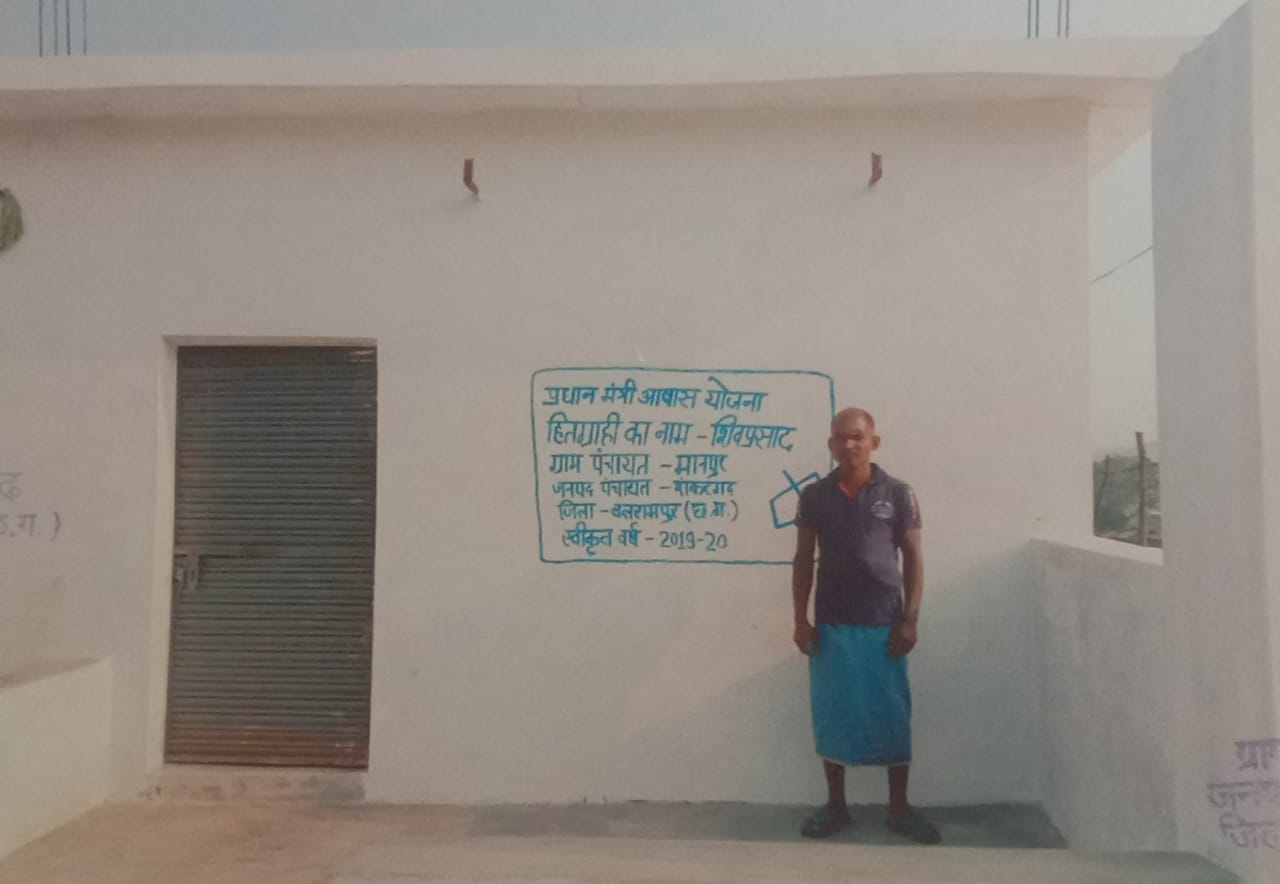 प्रधान मंत्री आवास योजना
हितग्राही का नाम - शिवप्रसाद
ग्राम पंचायत - मानपुर
जनपद पंचायत - शंकरगढ़
जिला - बलरामपुर (छ.ग.)
स्वीकृत वर्ष - 2019-20
ढ़
छ.ग.)
ग्राम
जनप
जिल